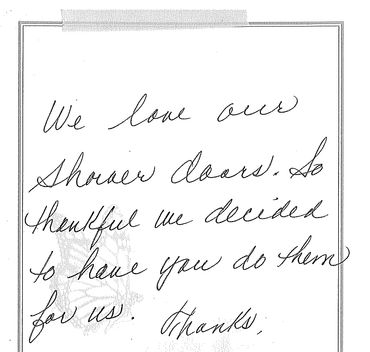 We love our
shower doors. So
thankful we decided
to have you do them
for us. Thanks,